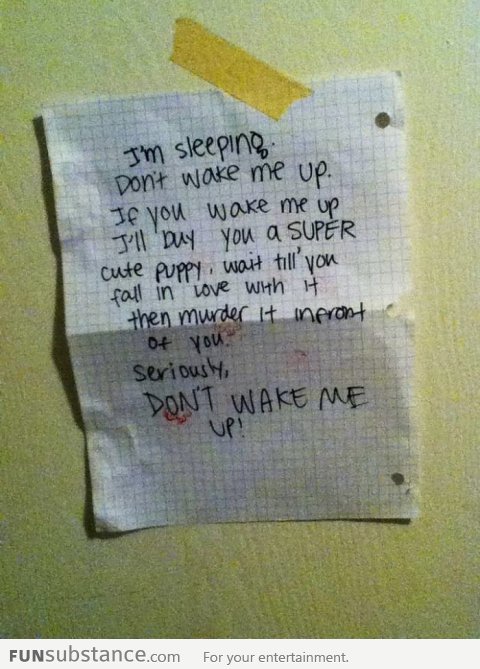 I'm sleeping.
Don't wake me up.
If you wake me up
I'll buy you a SUPER
cute puppy, wait till you
fall in love with it
then murder it infront
of you.
Seriously,
DON'T WAKE ME
UP!
FUNsubstance.com For your entertainment.